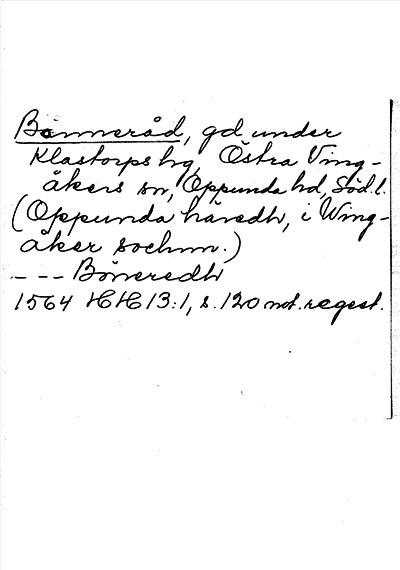 Bönneråd, gd under
Klastorps hg, Östra Ving-
åkers sn, Oppunda hd, Söd. l.
(Oppunda häredh, i Wing-
åker sochnn.)
--- Böneredh
1564 HH 13:1, s. 120 not. regest.